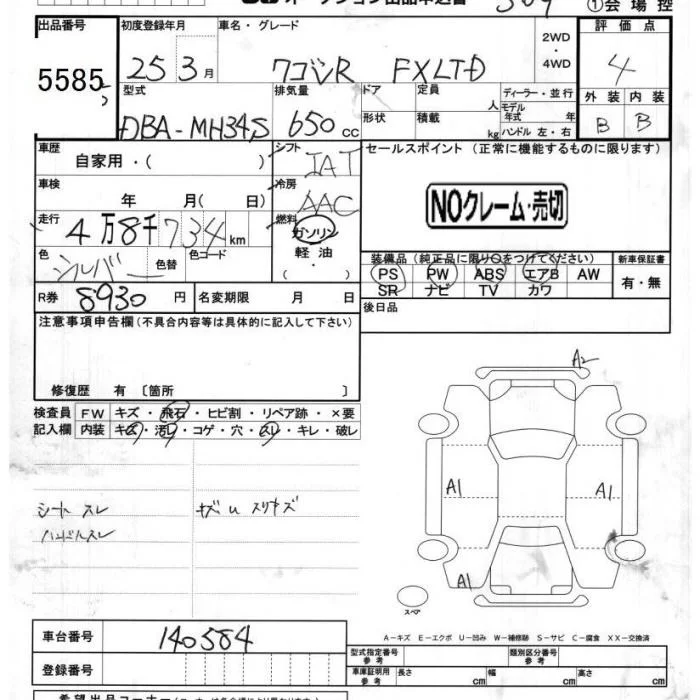 ①会場控
出品番号 初度登録年月 車名・グレード 2WD・4WD 評価点
5585 25年3月 ワゴンR FXLTD 4
型式 排気量 ドア 定員 人 ディーラー・並行 外装 内装
DBA-MH34S 650cc 形状 積載 kg モデル年式 年 ハンドル 左・右 B B
車歴 自家用・( ) シフト IAT セールスポイント (正常に機能するものに限ります)
車検 年 月( 日) 冷房 AAC
NOクレーム・売切
走行 4万8千734km 燃料 ガソリン
色 シルバー 色替 色コード 軽油 ( ・ )
装備品 (純正品に限り○をつけてください) 新車保証書
PS PW ABS エアB AW 有・無
SR ナビ TV カワ
R券 8930円 名変期限 月 日 後日品
注意事項申告欄 (不具合内容等は具体的に記入して下さい)
修復歴 有 〔箇所 〕
検査員 FW キズ・飛石・ヒビ割・リペア跡・×要
記入欄 内装 キズ・汚レ・コゲ・穴・スレ・キレ・破レ
A2
A1 A1
シート スレ キズU スリキズ
ハンドルスレ
A1
スペア
A-キズ E-エクボ U-凹み W-補修跡 S-サビ C-腐食 XX-交換済
車台番号 140584
型式指定番号 参考 類別区分番号 参考
登録番号 車庫証明用 参考 長さ cm 幅 cm 高さ cm